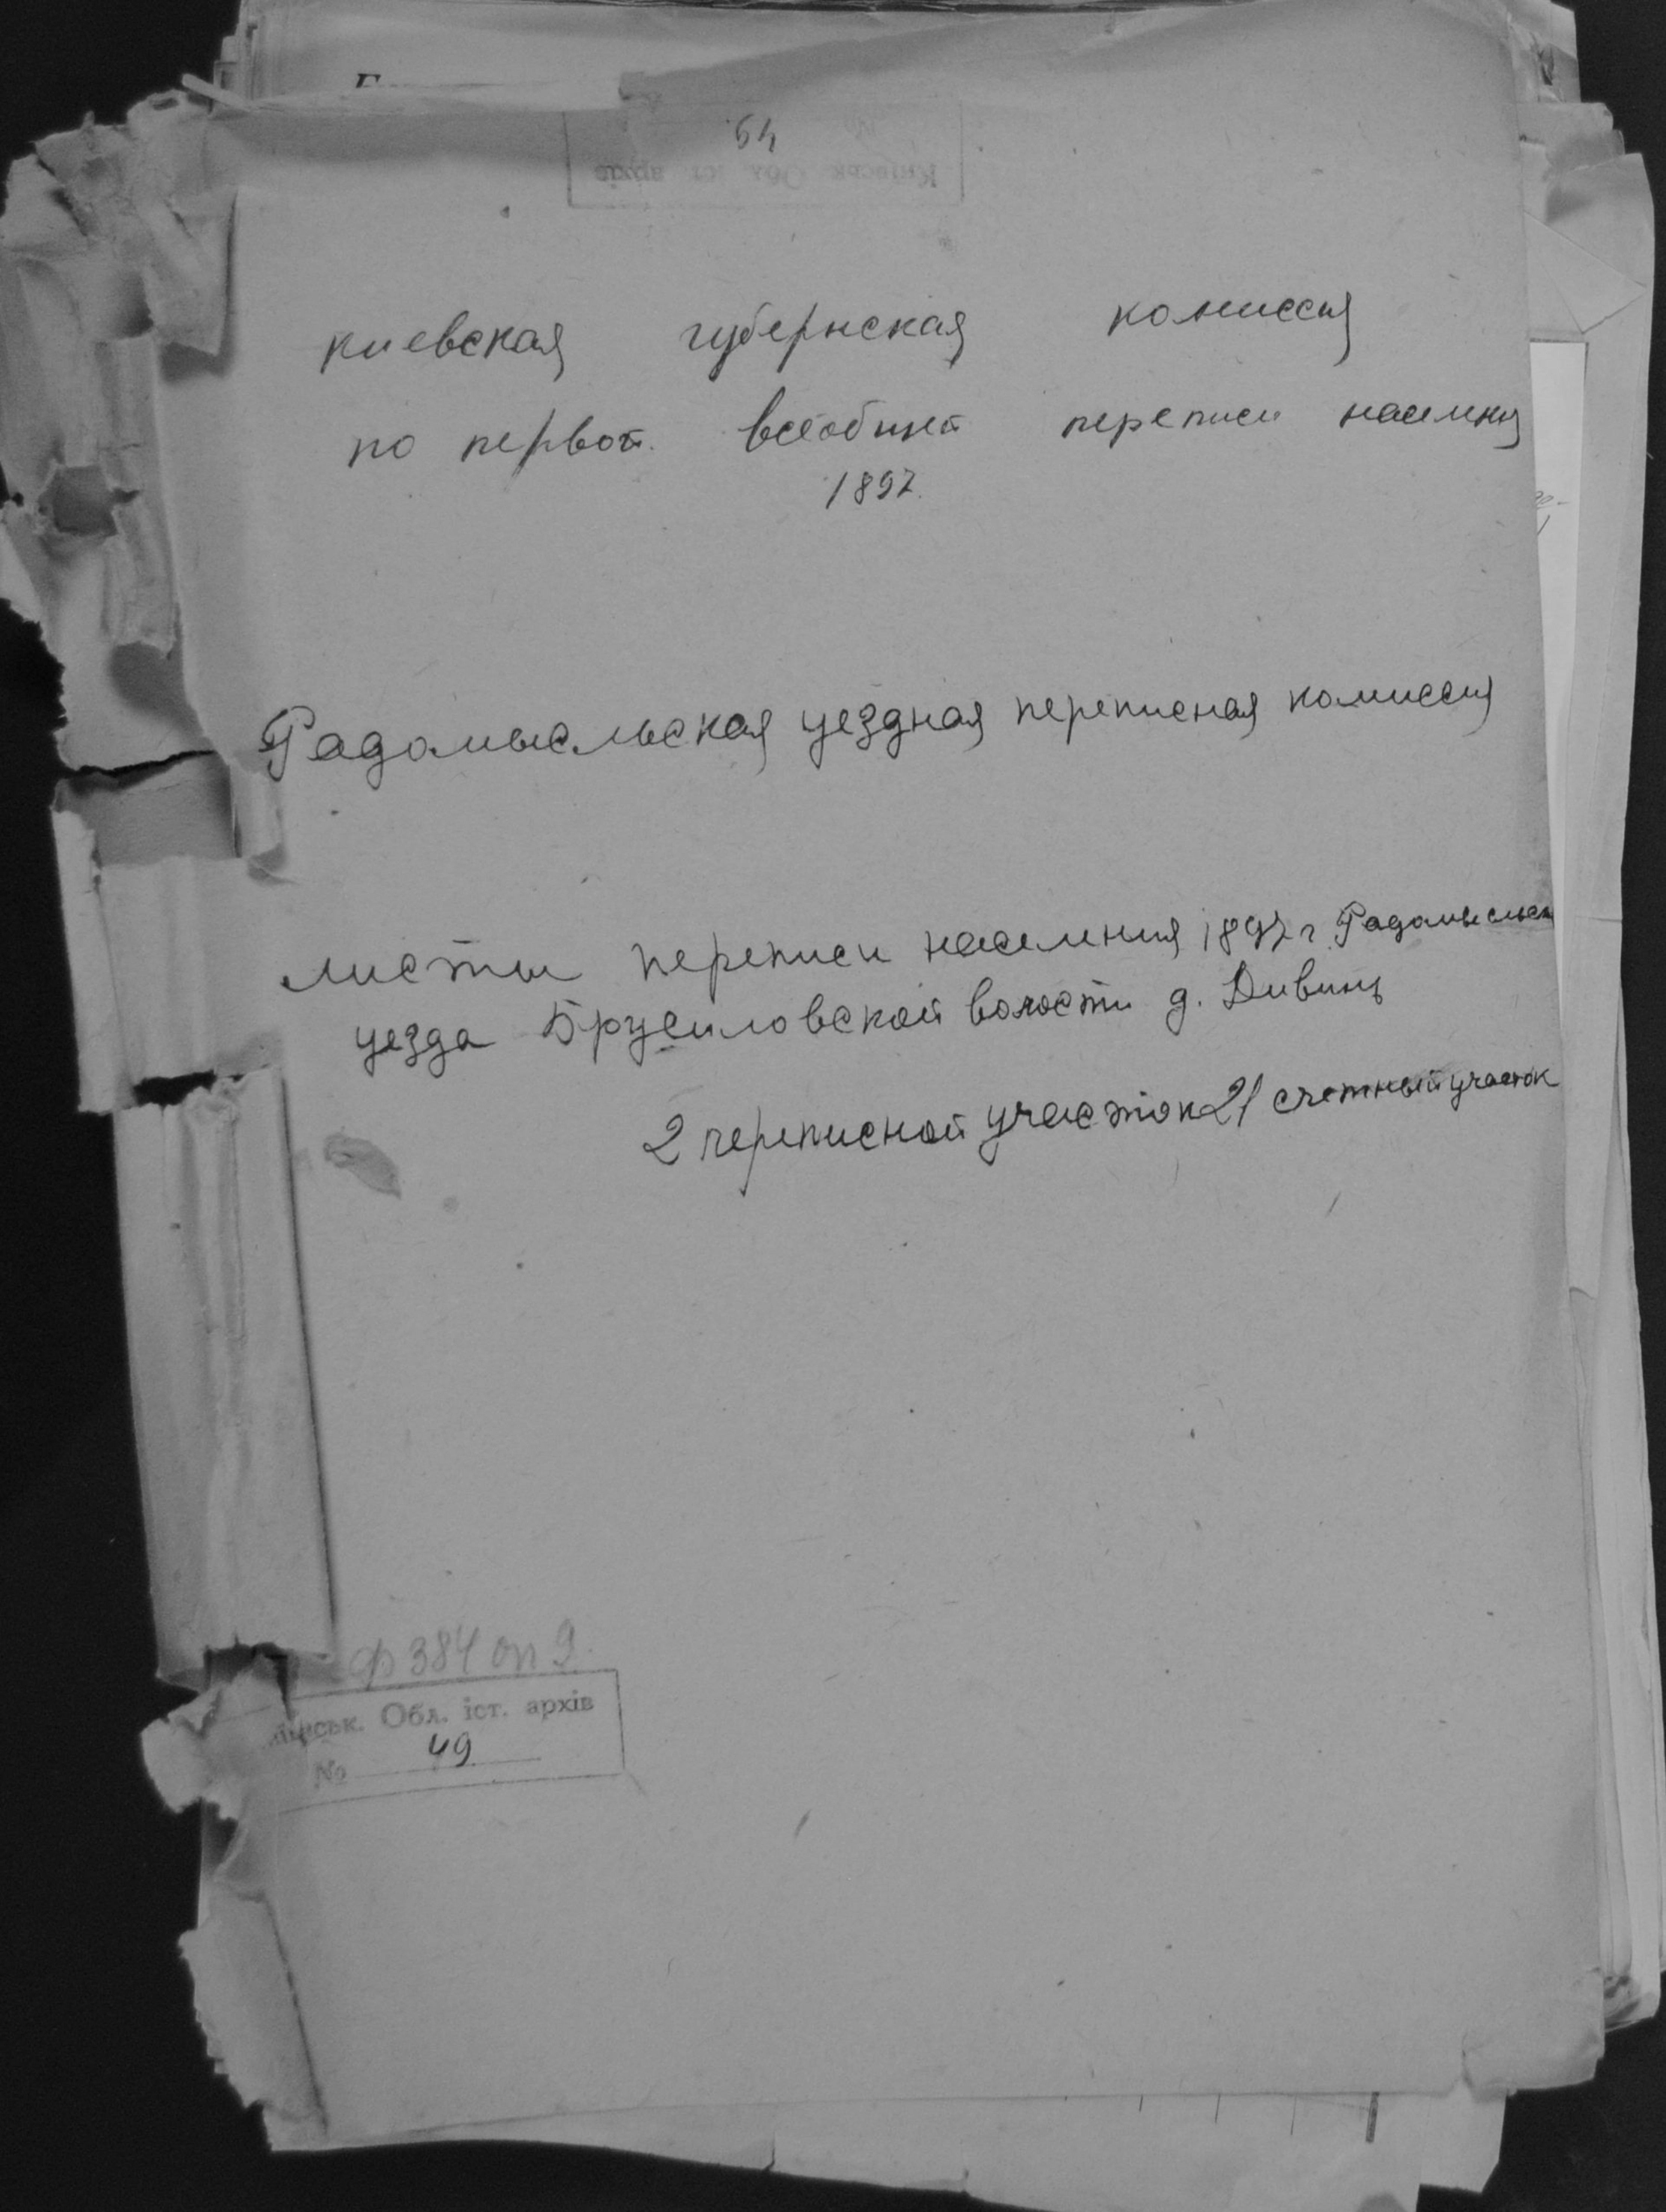 54
Київськ Обл іст архів
№
киевская губернская комиссия
по первой всеобщей переписи населения
1897.
Радомысльская уездная переписная комиссия
листы переписи населения 1897 г Радомысльск
уезда Брусиловской волости д. Дивинь
2 переписной участок 21 счетный участок
ф 384 оп 9.
Обл. іст. архів
№ 49